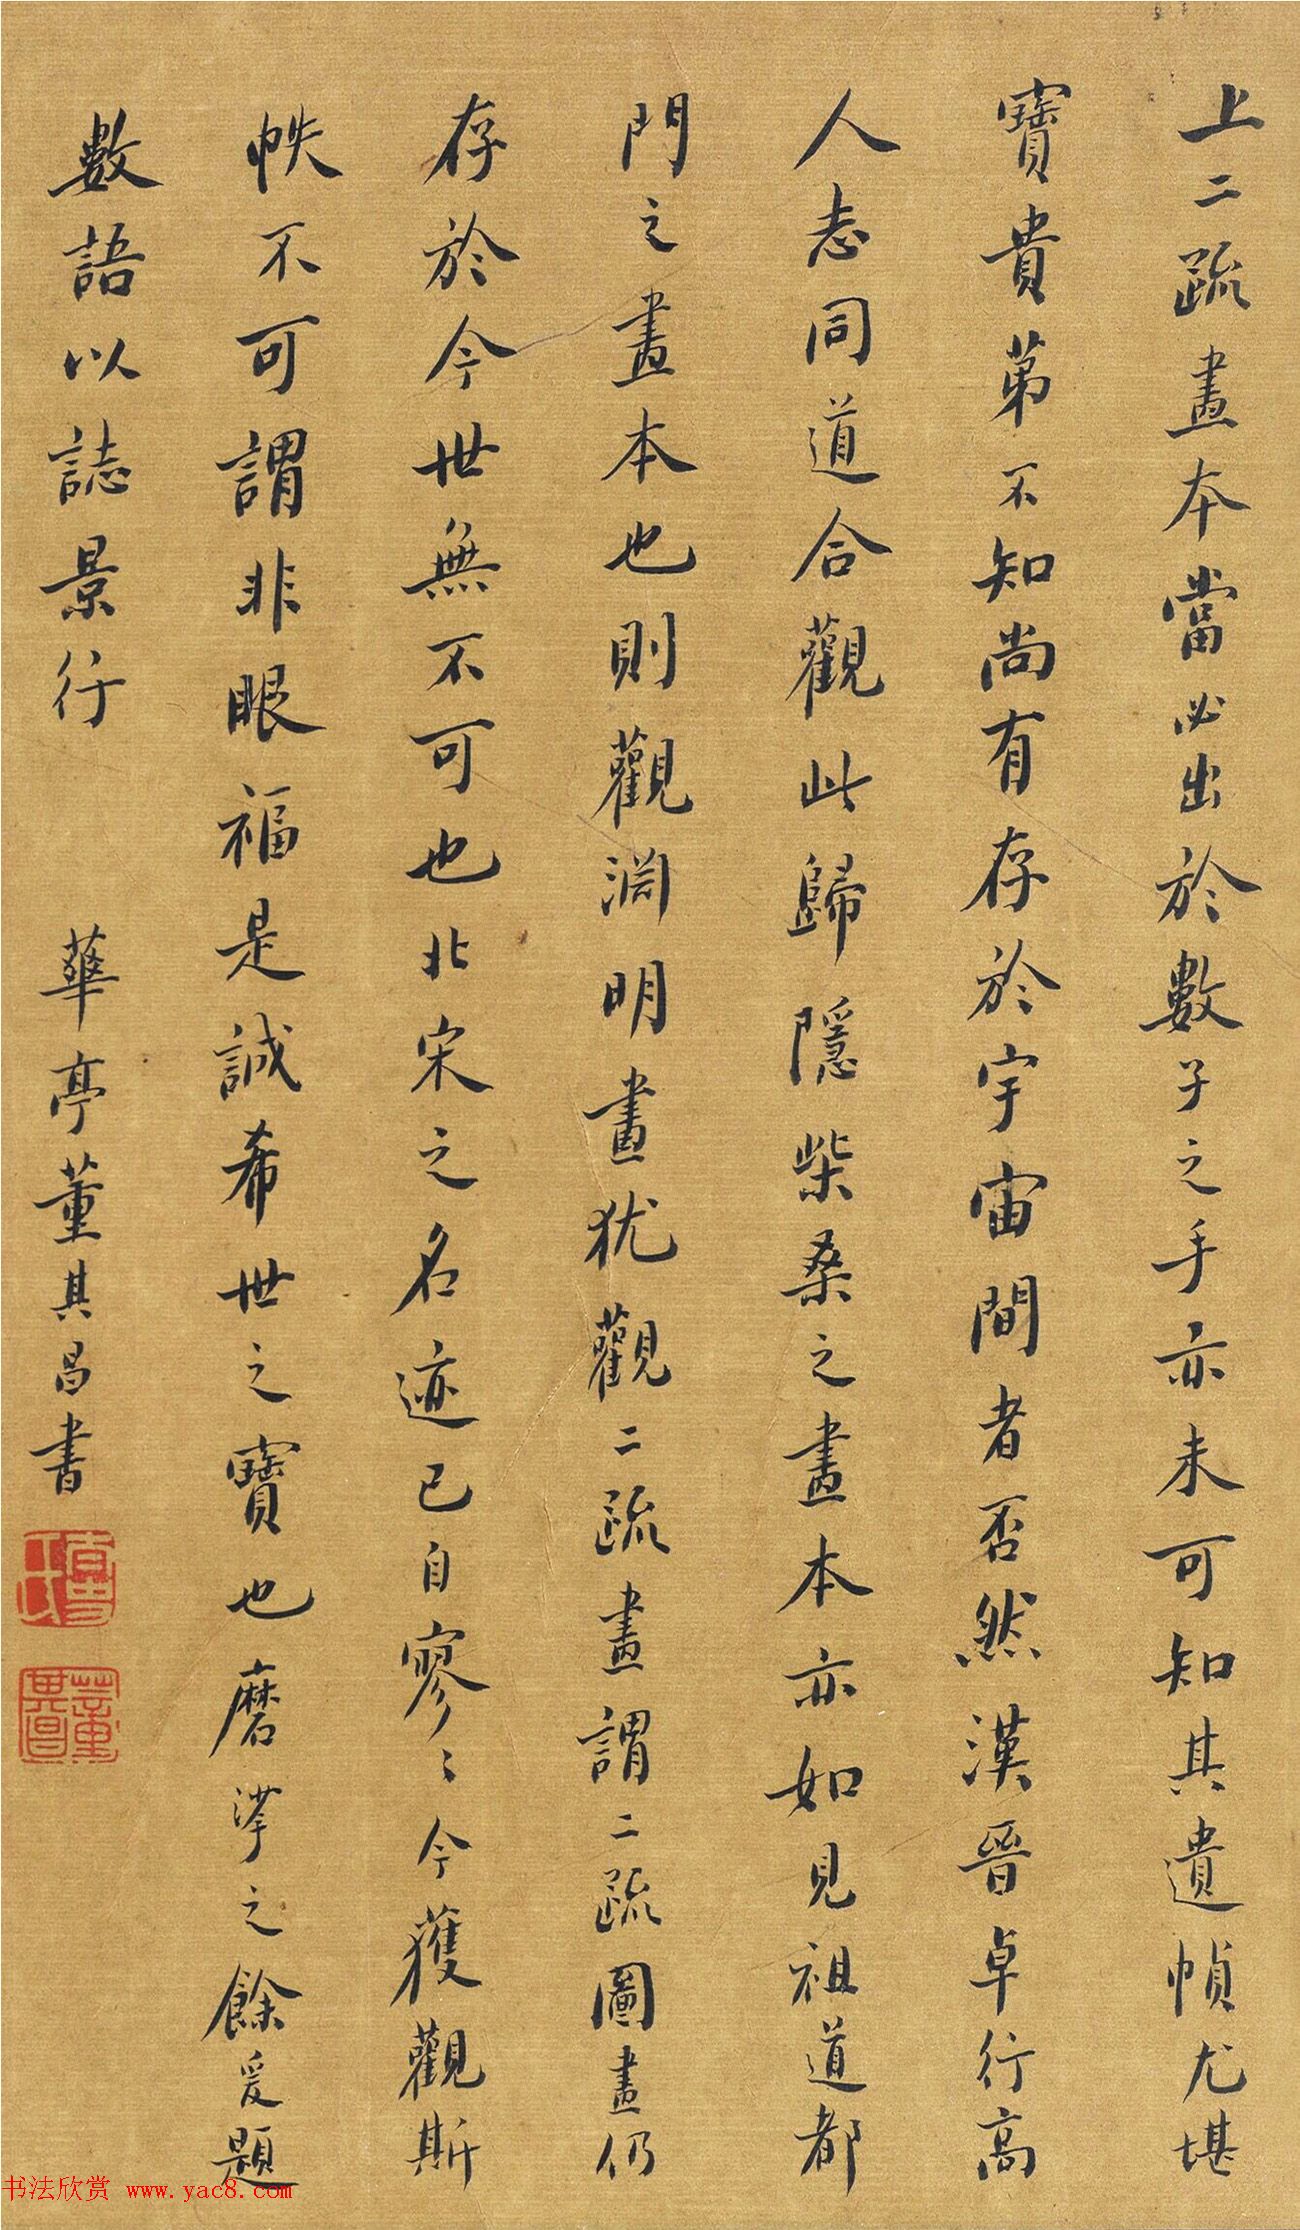 上二疏畫本當必出於數子之手亦未可知其遺幀尤堪
寶貴第不知尚有存於宇宙間者否然漢晉卓行高
人志同道合觀此歸隱柴桑之畫本亦如見祖道都
門之畫本也則觀淵明畫猶觀二疏畫謂二疏圖畫仍
存於今世無不可也北宋之名迹已自寥〻今獲觀斯
帙不可謂非眼福是誠希世之寶也磨挲之餘爰題
數語以誌景行 華亭董其昌書
董其昌
书法欣赏 www.yac8.com